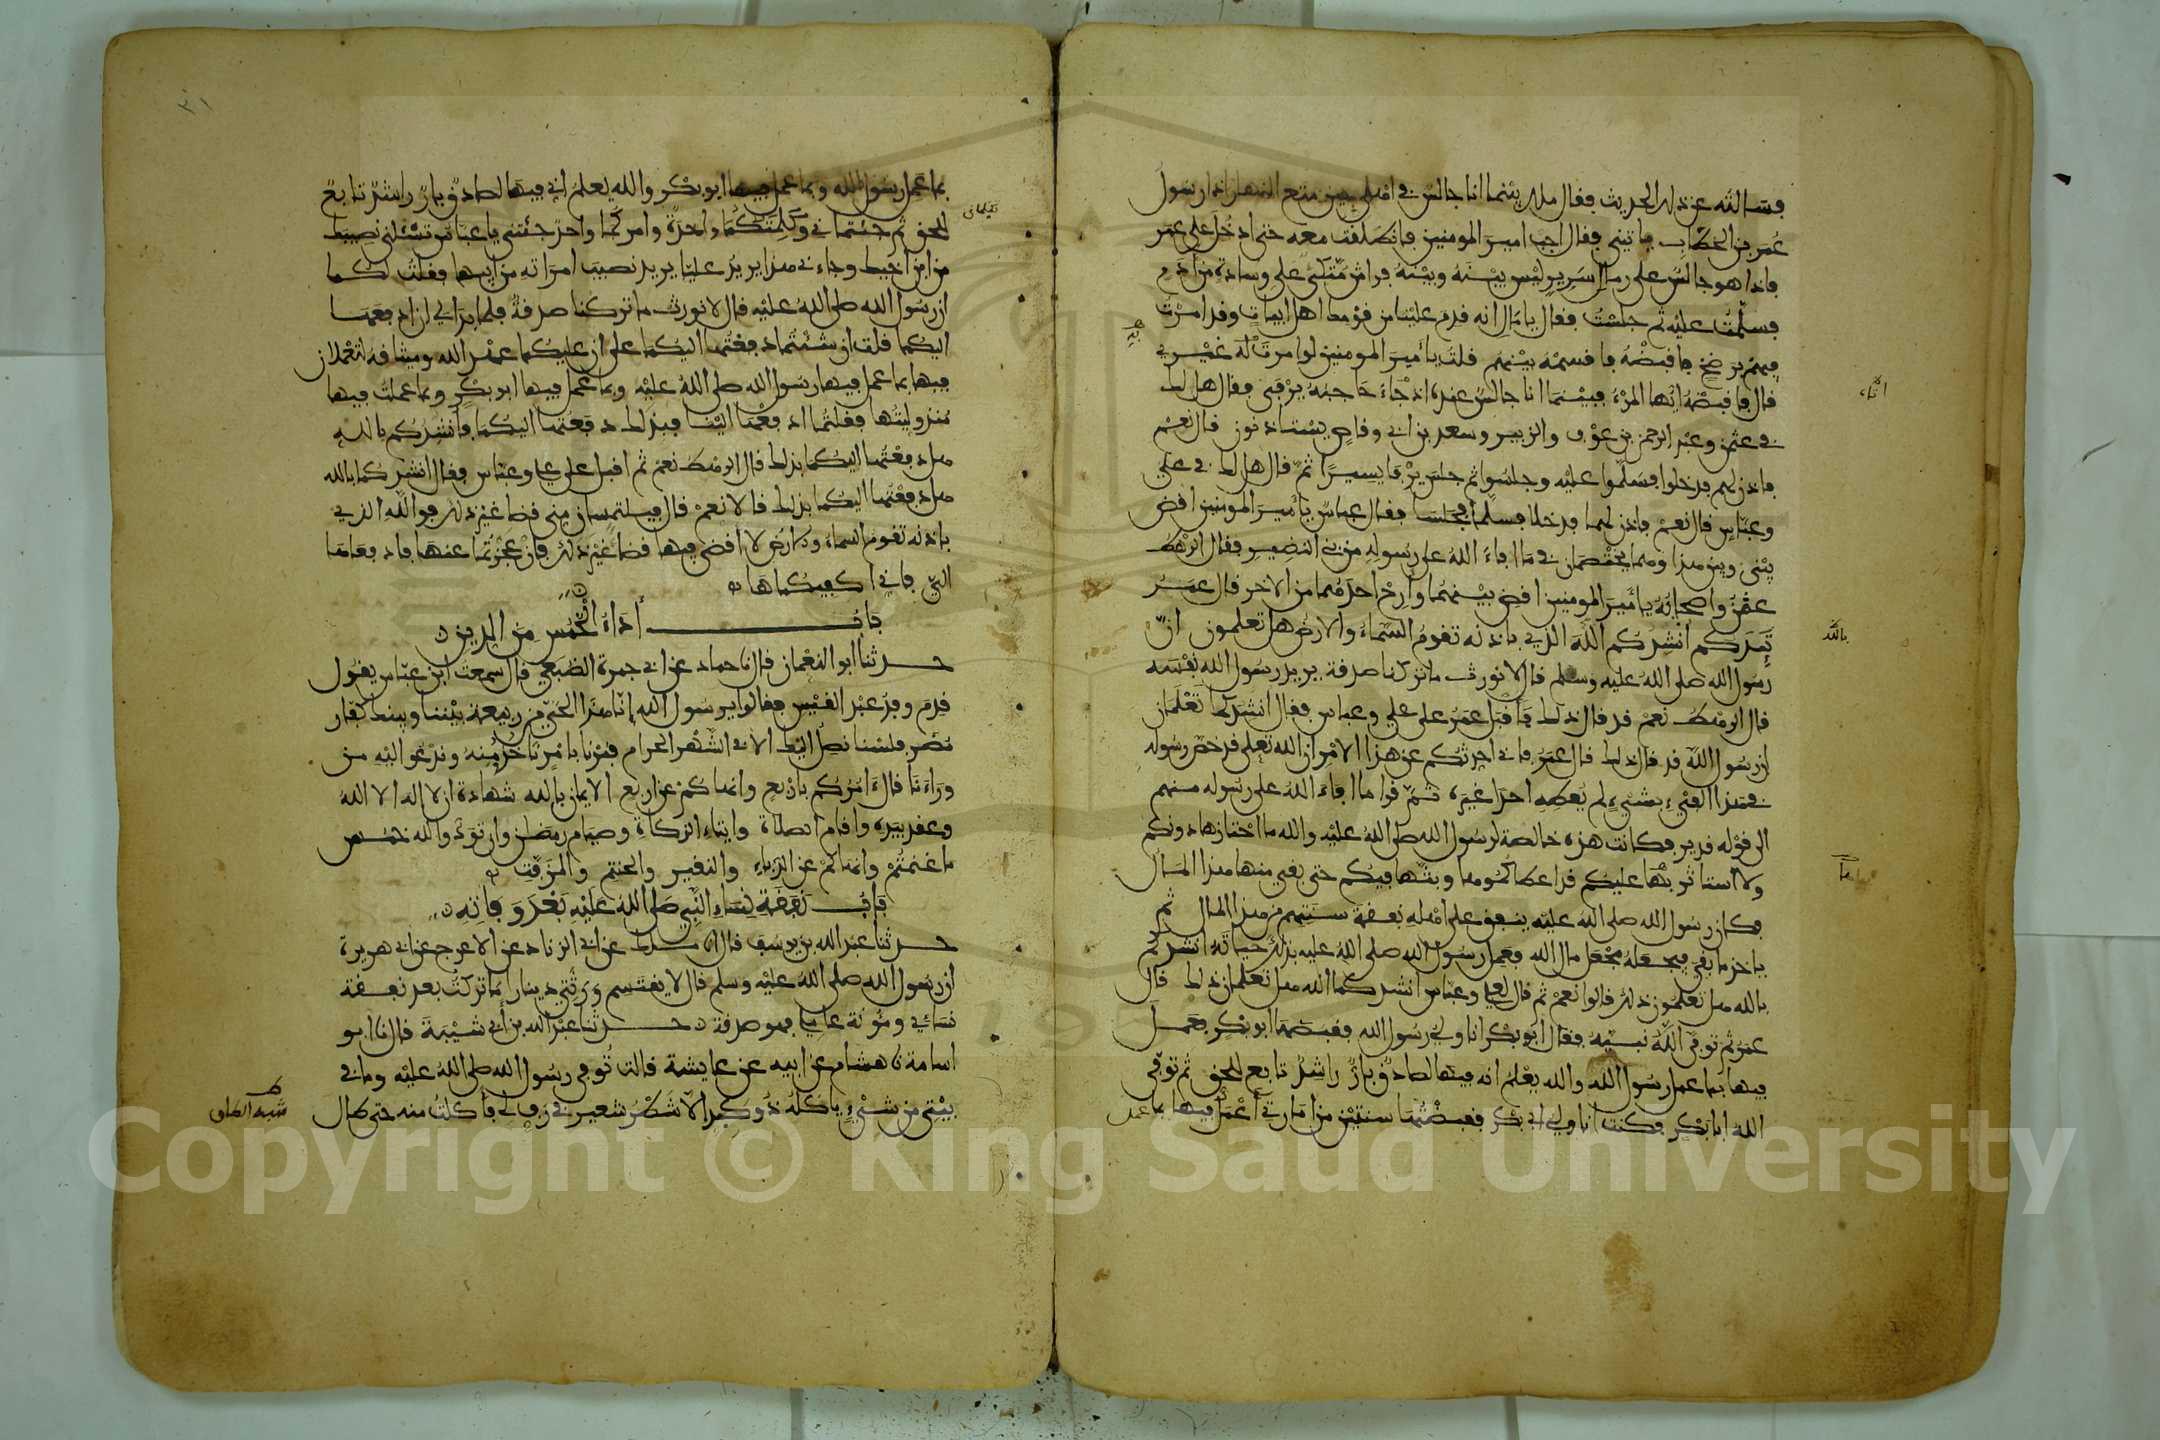 فسالته عن ذلك الحديث فقال ملك بينما انا جالس في اهلي حين متع النهار اذا رسول
عمر بن الخطاب ياتيني فقال اجب امير المومنين فانطلقت معه حتى ادخل على عمر
فاذا هو جالس على رمال سرير ليس بينه وبينه فراش متكئ على وسادة من ادم
فسلمت عليه ثم جلست فقال يا مال انه قدم علينا من قومك اهل ابيات وقد امرت
فيهم برضخ فاقبضه فاقسمه بينهم قلت يا امير المومنين لو امرت له غيري
قال فاقبضه ايها المرء فبينما انا جالس عنده اذ جاء حاجبه يرفى فقال هل لك
في عثمن وعبد الرحمن بن عوف والزبير وسعد بن ابي وقاص يستاذنون قال نعم
فاذن لهم فدخلوا فسلموا عليه وجلسوا ثم جلس يرفا يسيرا ثم قال هل لك في علي
وعباس قال نعم فاذن لهما فدخلا فسلما فجلسا فقال عباس يا امير المومنين اقض
بيني وبين هذا وهما يختصمان في ما افاء الله على رسوله من بني النضير فقال الرهط
عثمن واصحابه يا امير المومنين اقض بينهما وارح احدهما من الاخر قال عمر
تيدكم انشدكم الله الذي باذنه تقوم السماء والارض هل تعلمون ان
رسول الله صلى الله عليه وسلم قال لا نورث ما تركنا صدقة يريد رسول الله نفسه
قال الرهط نعم قد قال ذلك فاقبل عمر على علي وعباس فقال انشدكما تعلمان
ان رسول الله قد قال ذلك قال عمر فاني احدثكم عن هذا الامر ان الله تعلى قد خص رسوله
في هذا الفيء بشيء لم يعطه احدا غيره ثم قرا ما افاء الله على رسوله منهم
الى قوله قدير فكانت هذه خالصة لرسول الله صلى الله عليه والله ما احتازها دونكم
ولا استاثر بها عليكم قد اعطاكموها وبثها فيكم حتى بقي منها هذا المال
فكان رسول الله صلى الله عليه ينفق على اهله نفقة سنتهم من هذا المال ثم
ياخذ ما بقي فيجعله مجعل مال الله فعمل رسول الله صلى الله عليه بذلك حياته انشدكم
بالله هل تعلمون ذلك قالوا نعم ثم قال لعلي وعباس انشدكما الله هل تعلمان ذلك قال
عمر ثم توفى الله نبيه فقال ابو بكر انا ولي رسول الله فقبضها ابو بكر فعمل
فيها بما عمل رسول الله والله يعلم انه فيها لصادق بار راشد تابع للحق ثم توفى
الله ابا بكر فكنت انا ولي ابي بكر فقبضتها سنتين من امارتي اعمل فيها بما عمل
بالله
بما عمل رسول الله وبما عمل فيها ابو بكر والله يعلم اني فيها لصادق بار راشد تابع
للحق ثم جئتماني وكلمتكما واحدة وامركما واحد جئتني يا عباس تسئلني نصيبك
من ابن اخيك وجاءني هذا يريد عليا يريد نصيب امراته من ابيها فقلت لكما
ان رسول الله صلى الله عليه قال لا نورث ما تركنا صدقة فلما بدا لي ان ادفعها
اليكما قلت ان شئتما دفعتها اليكما على ان عليكما عهد الله وميثاقه لتعملان
فيها بما عمل فيها رسول الله صلى الله عليه وبما عمل فيها ابو بكر وبما عملت فيها
منذ وليتها فقلتما ادفعها الينا فبذلك دفعتها اليكما فانشدكم بالله
هل دفعتها اليكما بذلك قال الرهط نعم ثم اقبل على علي وعباس فقال انشدكما بالله
هل دفعتها اليكما بذلك قالا نعم قال فتلتمسان مني قضا غير ذلك فوالله الذي
باذنه تقوم السماء والارض لا اقضي فيها قضا غير ذلك فان عجزتما عنها فادفعاها
الي فاني اكفيكماها
باب اداء الخمس من الدين
حدثنا ابو النعمان قال نا حماد عن ابي جمرة الضبعي قال سمعت ابن عباس يقول
قدم وفد عبد القيس فقالوا يرسول الله انا هذا الحي من ربيعة بيننا وبينك كفار
مضر فلسنا نصل اليك الا في الشهر الحرام فمرنا بامر ناخذ منه وندعو اليه من
وراءنا قال امركم باربع وانهاكم عن اربع الايمان بالله شهادة ان لا اله الا الله
وعقد بيده واقام الصلاة وايتاء الزكاة وصيام رمضن وان تودوا لله خمس
ما غنمتم وانهاكم عن الدباء والنقير والحنتم والمزفت
باب نفقة نساء النبي صلى الله عليه بعد وفاته
حدثنا عبد الله بن يوسف قال انا ملك عن ابي الزناد عن الاعرج عن ابي هريرة
ان رسول الله صلى الله عليه وسلم قال لا يقتسم ورثتي دينارا ما تركت بعد نفقة
نسائي ومؤنة عاملي فهو صدقة حدثنا عبد الله بن ابي شيبة قال نا ابو
اسامة نا هشام عن ابيه عن عايشة قالت توفي رسول الله صلى الله عليه وما في
بيتي من شيء ياكله ذو كبد الا شطر شعير في رف لي فاكلت منه حتى طال